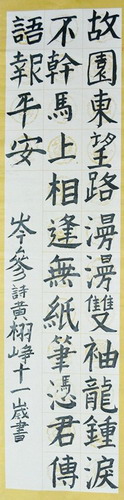 故園東望路漫漫雙袖龍鍾淚
不幹馬上相逢無紙筆憑君傳
語報平安
岑參詩黃栩崢十一歲書